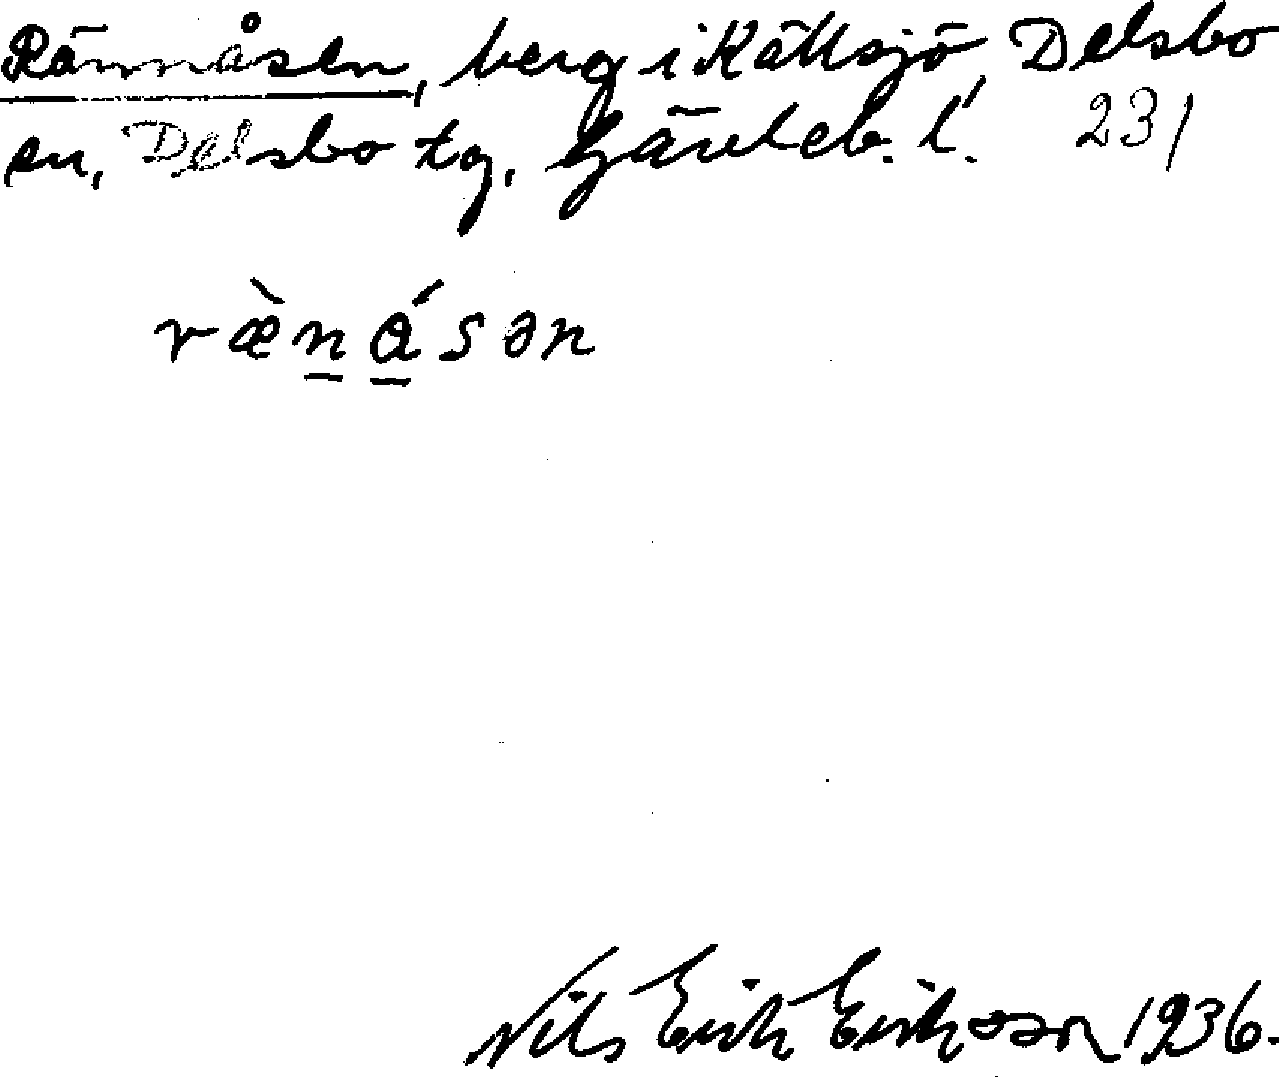 Rännåsen, berg i Källsjö, Delsbo
sn, Delsbo tg, Gävleb. l. 231
ræ̀n̲ǻ̲sən
Nils Erik Eriksson 1936.